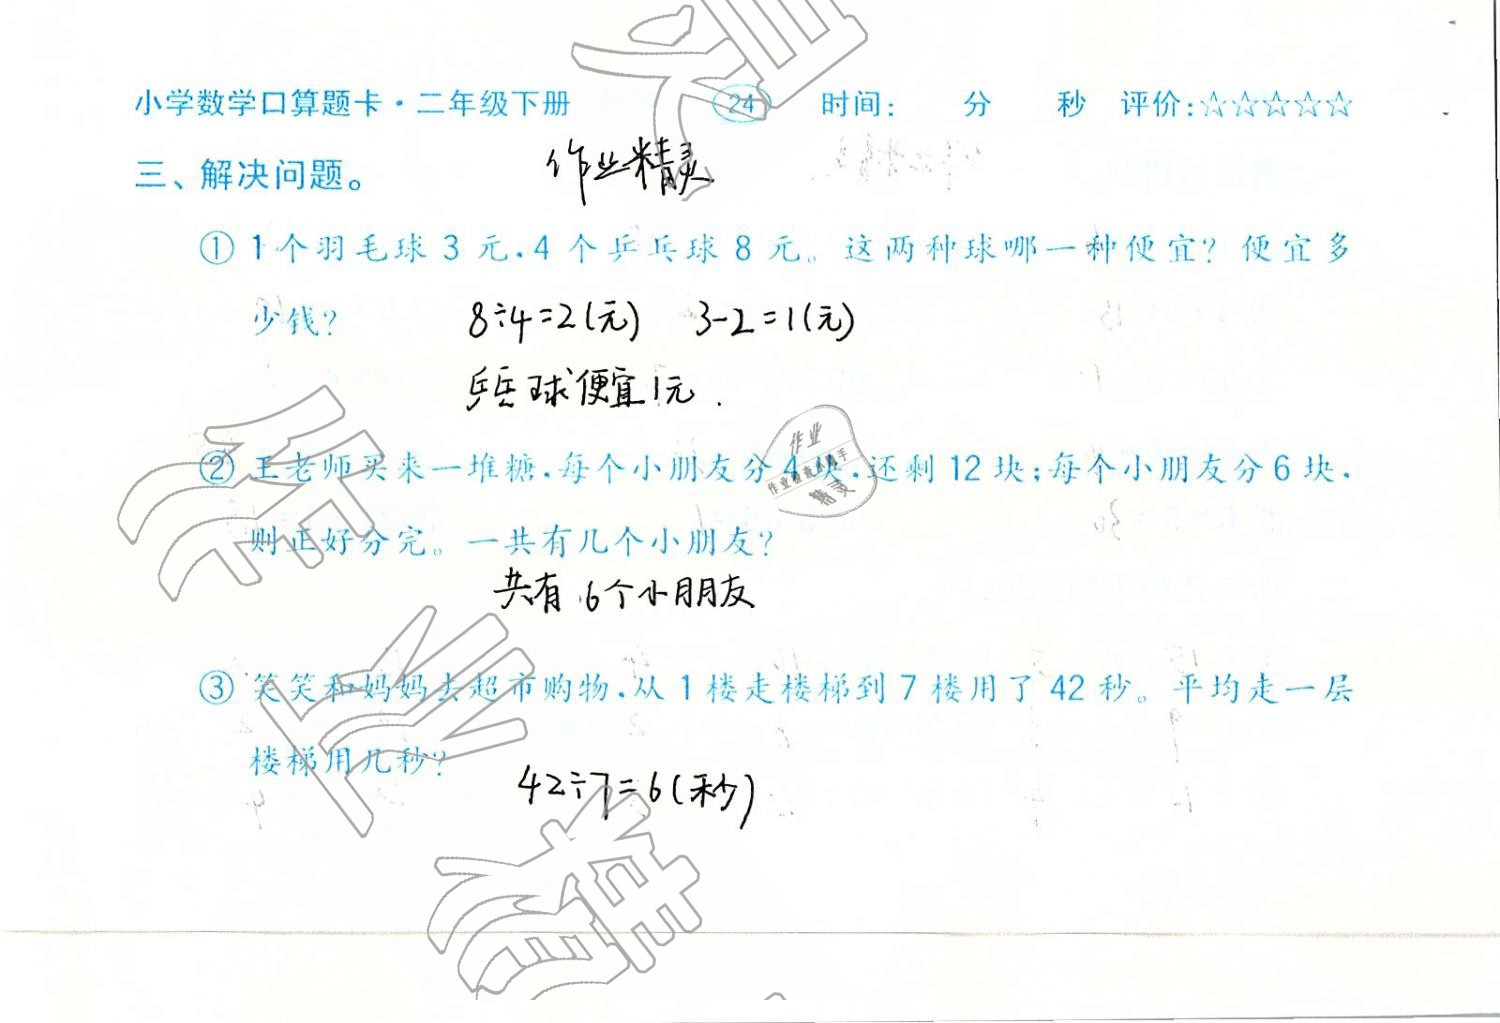 小学数学口算题卡·二年级下册 24 时间: 分 秒 评价:☆☆☆☆☆
作业精灵
三、解决问题。
① 1个羽毛球3元,4个乒乓球8元。这两种球哪一种便宜?便宜多
少钱? 8÷4=2(元) 3-2=1(元)
乒乓球便宜1元.
② 王老师买来一堆糖,每个小朋友分4块,还剩12块;每个小朋友分6块,
则正好分完。一共有几个小朋友?
共有6个小朋友
③ 笑笑和妈妈去超市购物,从1楼走楼梯到7楼用了42秒。平均走一层
楼梯用几秒? 42÷7=6(秒)
作业
作业检查小助手
精灵
作
业
精